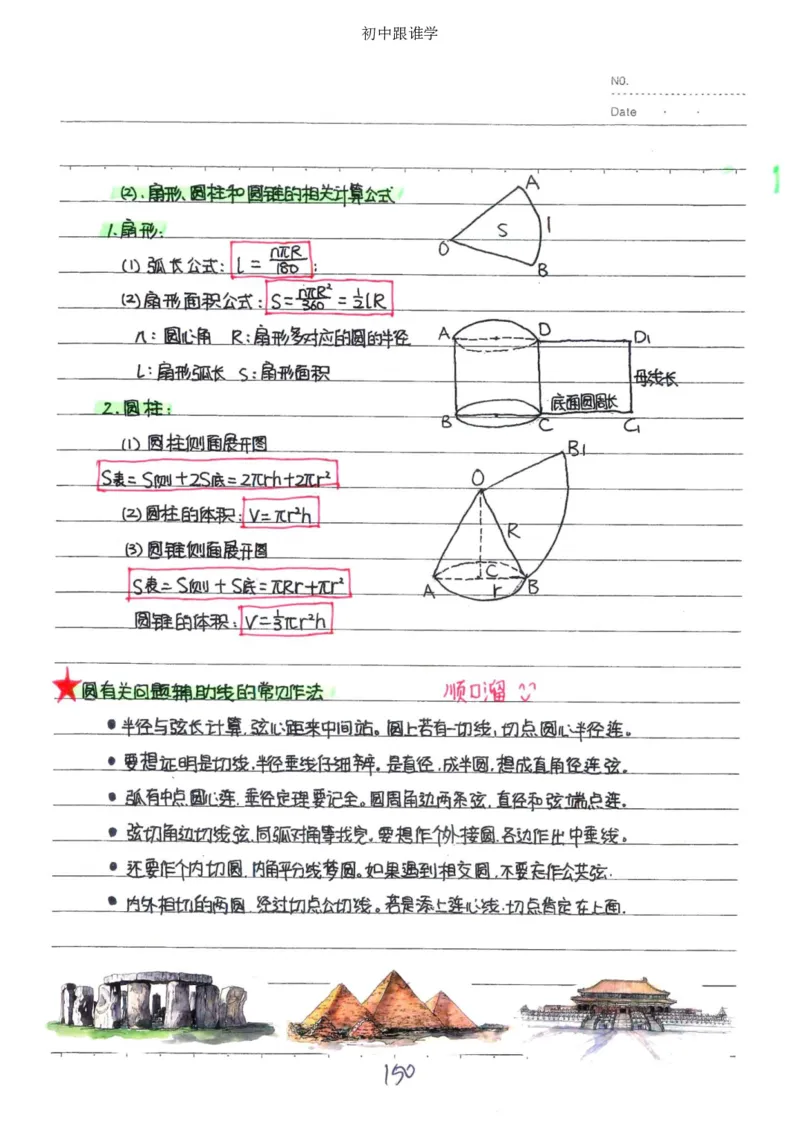 初中跟谁学
NO.
Date
(2)、扇形、圆柱和圆锥的相关计算公式
1.扇形:
(1) 弧长公式: L = nπR/180 ;
(2)扇形面积公式: S = nπR²/360 = ½LR
n: 圆心角 R:扇形多对应的圆的半径
L:扇形弧长 S:扇形面积
2.圆柱:
(1) 圆柱侧面展开图
S表=S侧+2S底=2πrh+2πr²
(2)圆柱的体积: V=πr²h
(3)圆锥侧面展开图
S表=S侧+S底=πRr+πr²
圆锥的体积: V=⅓πr²h
A
O
S
l
B
A
D
D1
母线长
底面圆周长
B
C
C1
B1
O
R
C
A
r
B
圆有关问题辅助线的常见作法 顺口溜
半径与弦长计算,弦心距来中间站。圆上若有一切线,切点圆心半径连。
要想证明是切线,半径垂线仔细辨。是直径,成半圆,想成直角径连弦。
弧有中点圆心连,垂径定理要记全。圆周角边两条弦,直径和弦端点连。
弦切角边切线弦,同弧对角等找完。要想作个外接圆,各边作出中垂线。
还要作个内切圆,内角平分线梦圆。如果遇到相交圆,不要忘作公共弦.
内外相切的两圆,经过切点公切线。若是添上连心线,切点肯定在上面.
150